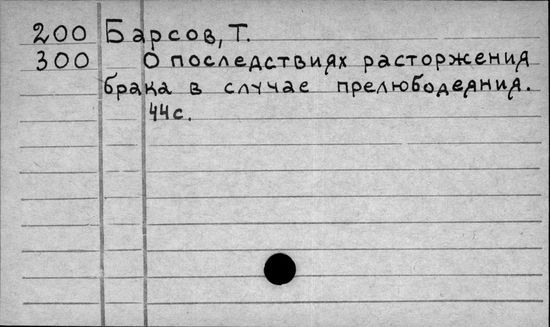 200 Барсов, Т.
300 О последствиях расторжения
брака в случае прелюбодеяния.
44с.